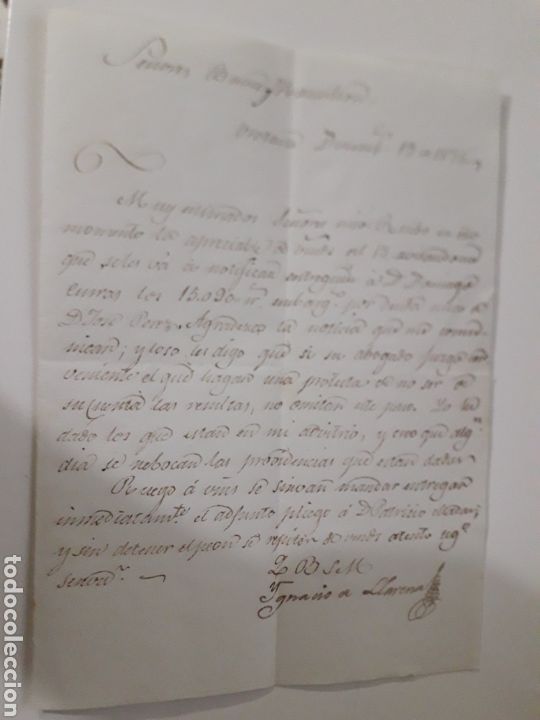 Señores Bruce y Hamilton
Orotava Diciembre 13 de 18
Muy estimados Señores míos: Recibo en este
momento la apreciable de Vmdes del 13 avisandome
que seles vá á notificar entreguen á Dn Domingo
Curras los 15.090 rr. embarg.s por deuda
Dn José Perez. Agradezco la noticia que me comu-
nican; y solo les digo que si su abogado juzga con-
veniente el que hagan una protesta de no ser de
su cuenta las resultas, no omitan este paso. Yo he
dado los que estan en mi arbitrio, y creo que alg.n
dia se rebocan las providencias que estan dadas.
Ruego á vms se sirvan mandar entregar
inmediatam.te el adjunto pliego á D. Patricio Madan;
y sin detener el peon se repite de vmdes atento seg.o
servid.r
Q B S M
Ygnacio de Llarena
todocoleccion